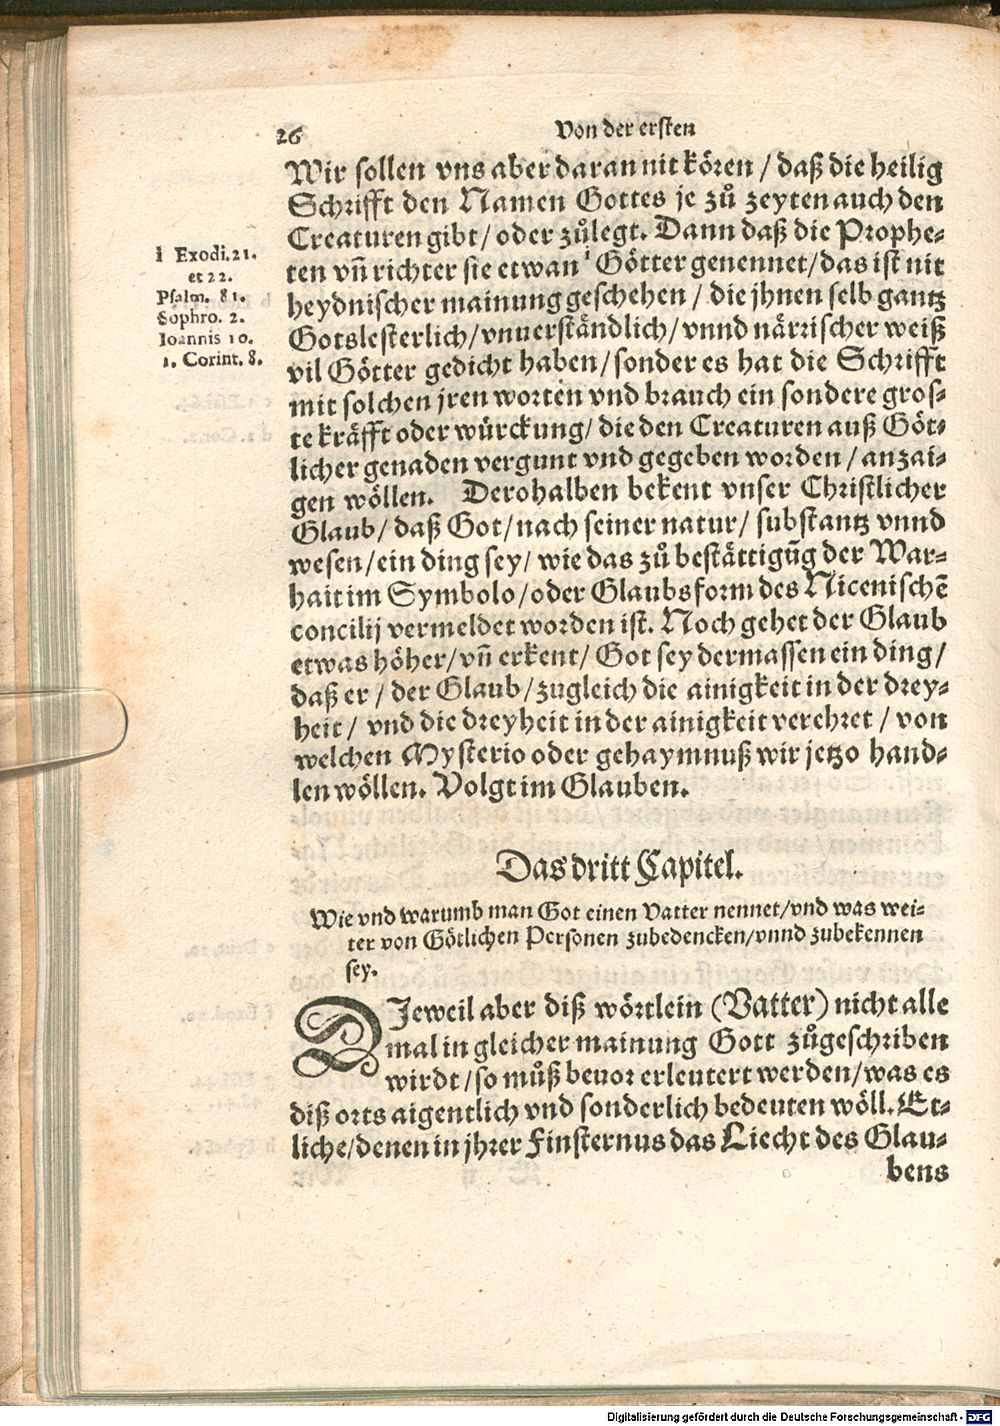 26
Von der ersten
Wir sollen vns aber daran nit kören / daß die heilig
Schrifft den Namen Gottes je zů zeyten auch den
Creaturen gibt / oder zůlegt. Dann daß die Prophe-
ten vñ richter sie etwan ˡ Götter genennet / das ist nit
heydnischer mainung geschehen / die jhnen selb gantz
Gotslesterlich / vnuerständlich / vnnd närrischer weiß
vil Götter gedicht haben / sonder es hat die Schrifft
mit solchen jren worten vnd brauch ein sondere gros-
te kräfft oder würckung / die den Creaturen auß Göt-
licher genaden vergunt vnd gegeben worden / anzai-
gen wöllen. Derohalben bekent vnser Christlicher
Glaub / daß Got / nach seiner natur / substantz vnnd
wesen / ein ding sey / wie das zů bestättigũg der War-
hait im Symbolo / oder Glaubsform des Nicenischẽ
concilij vermeldet worden ist. Noch gehet der Glaub
etwas höher / vñ erkent / Got sey dermassen ein ding /
daß er / der Glaub / zugleich die ainigkeit in der drey-
heit / vnd die dreyheit in der ainigkeit verehret / von
welchen Mysterio oder gehaymnuß wir jetzo hand-
len wöllen. Volgt im Glauben.
l Exodi. 21.
et 22.
Psalm. 81.
Sophro. 2.
Ioannis 10.
1. Corint. 8.
Das dritt Capitel.
Wie vnd warumb man Got einen Vatter nennet / vnd was wei-
ter von Götlichen Personen zubedencken / vnnd zubekennen
sey.
DJeweil aber diß wörtlein (Vatter) nicht alle
mal in gleicher mainung Gott zůgeschriben
wirdt / so můß beuor erleutert werden / was es
diß orts aigentlich vnd sonderlich bedeuten wöll. Et-
liche / denen in jhrer Finsternus das Liecht des Glau-
bens
Digitalisierung gefördert durch die Deutsche Forschungsgemeinschaft - DFG